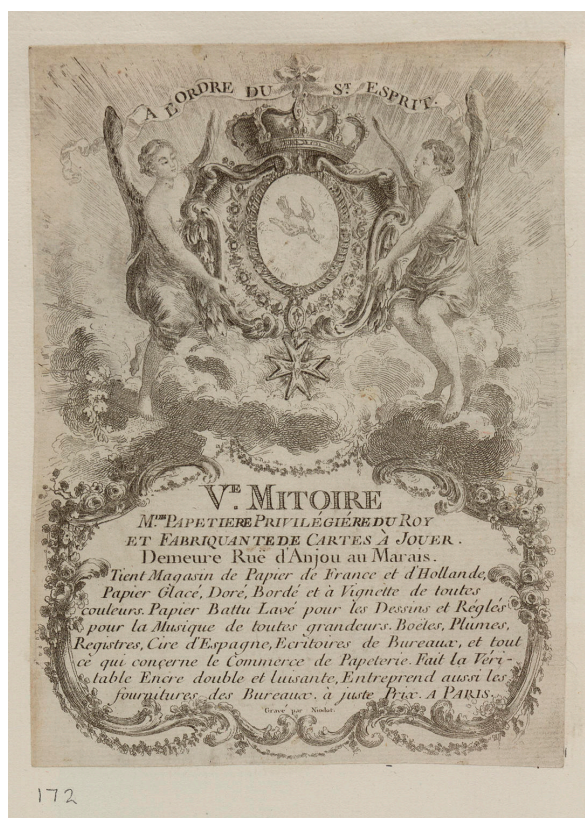 A L'ORDRE DU ST. ESPRIT.
VE. MITOIRE
Mde. PAPETIERE PRIVILÉGIÉRE DU ROY
ET FABRIQUANTE DE CARTES À JOUER.
Demeure Ruë d'Anjou au Marais.
Tient Magasin de Papier de France et d'Hollande,
Papier Glacé, Doré, Bordé et à Vignette de toutes
couleurs. Papier Battu Lavé pour les Dessins et Réglés
pour la Musique de toutes grandeurs. Boëtes, Plumes,
Registres, Cire d'Espagne, Ecritoires de Bureaux, et tout
cè qui conçerne le Commerce de Papeterie. Fait la Veri-
table Encre double et luisante, Entreprend aussi les
fournitures des Bureaux. à juste Prix. A PARIS.
Gravé par
172